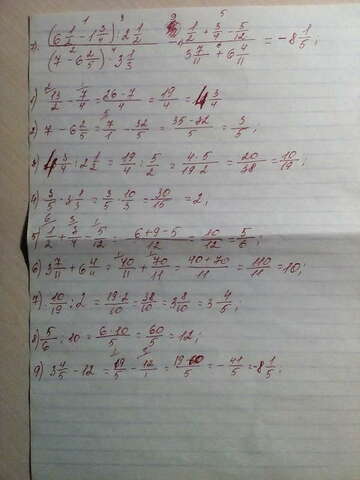 д) ((6 1/2 - 1 3/4) : 2 1/2) / ((7 - 6 2/5) · 3 1/3) - (1/2 + 3/4 - 5/12) / (3 7/11 + 6 4/11) = -8 1/5;
1) 13/2 - 7/4 = 26-7/4 = 19/4 = 4 3/4
2) 7 - 6 2/5 = 7/1 - 32/5 = 35-32/5 = 3/5;
3) 4 3/4 : 2 1/2 = 19/4 : 5/2 = 4·5/19·2 = 20/38 = 10/19;
4) 3/5 · 3 1/3 = 3/5 · 10/3 = 30/15 = 2;
5) 1/2 + 3/4 - 5/12 = 6+9-5/12 = 10/12 = 5/6;
6) 3 7/11 + 6 4/11 = 40/11 + 70/11 = 40+70/11 = 110/11 = 10;
7) 10/19 : 2 = 19·2/10 = 38/10 = 3 8/10 = 3 4/5;
8) 5/6 : 10 = 6·10/5 = 60/5 = 12;
9) 3 4/5 - 12 = 19/5 - 12/1 = 19-60/5 = -41/5 = -8 1/5;